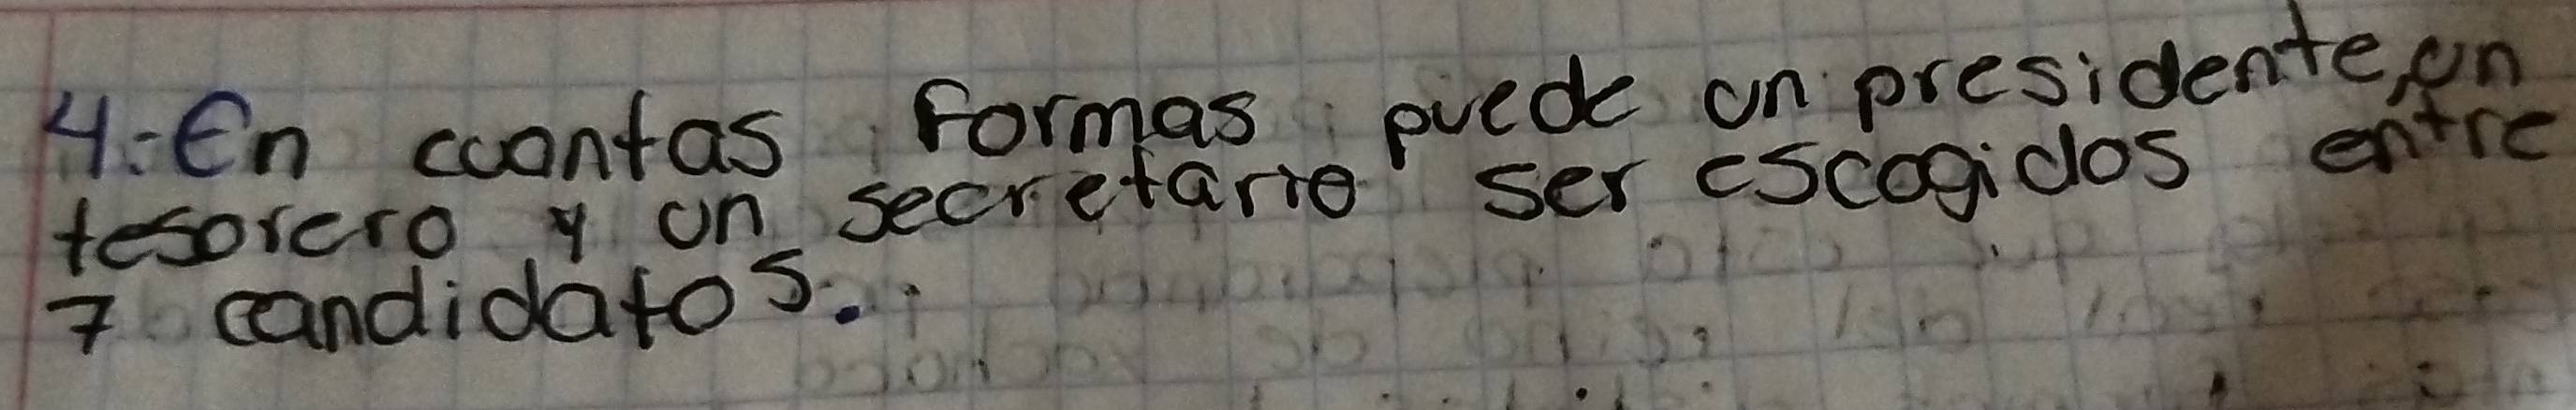 4.-En cuantas formas puede un presidente, un
tesorero y un secretario ser escogidos entre
7 candidatos.